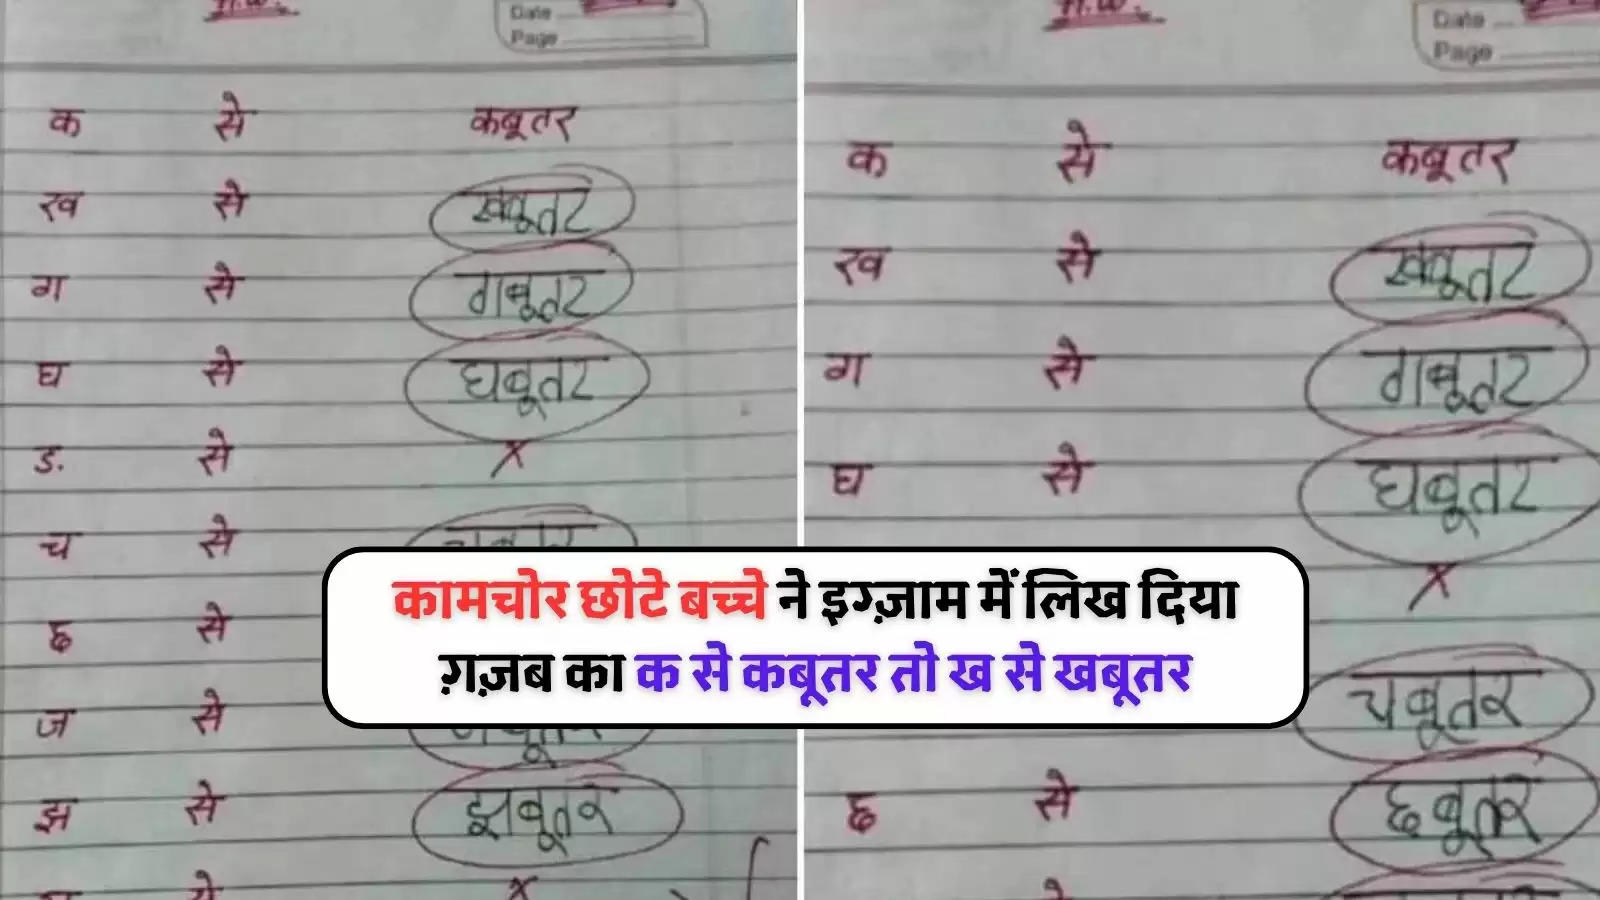 H.W.
Date
Page
क से कबूतर
ख से खबूतर
ग से गबूतर
घ से घबूतर
ड. से x
च से चबूतर
छ से
ज से जबूतर
झ से झबूतर
से x
H.W.
Date
Page
क से कबूतर
ख से खबूतर
ग से गबूतर
घ से घबूतर
x
चबूतर
छ से छबूतर
कामचोर छोटे बच्चे ने इग्ज़ाम में लिख दिया
ग़ज़ब का क से कबूतर तो ख से खबूतर